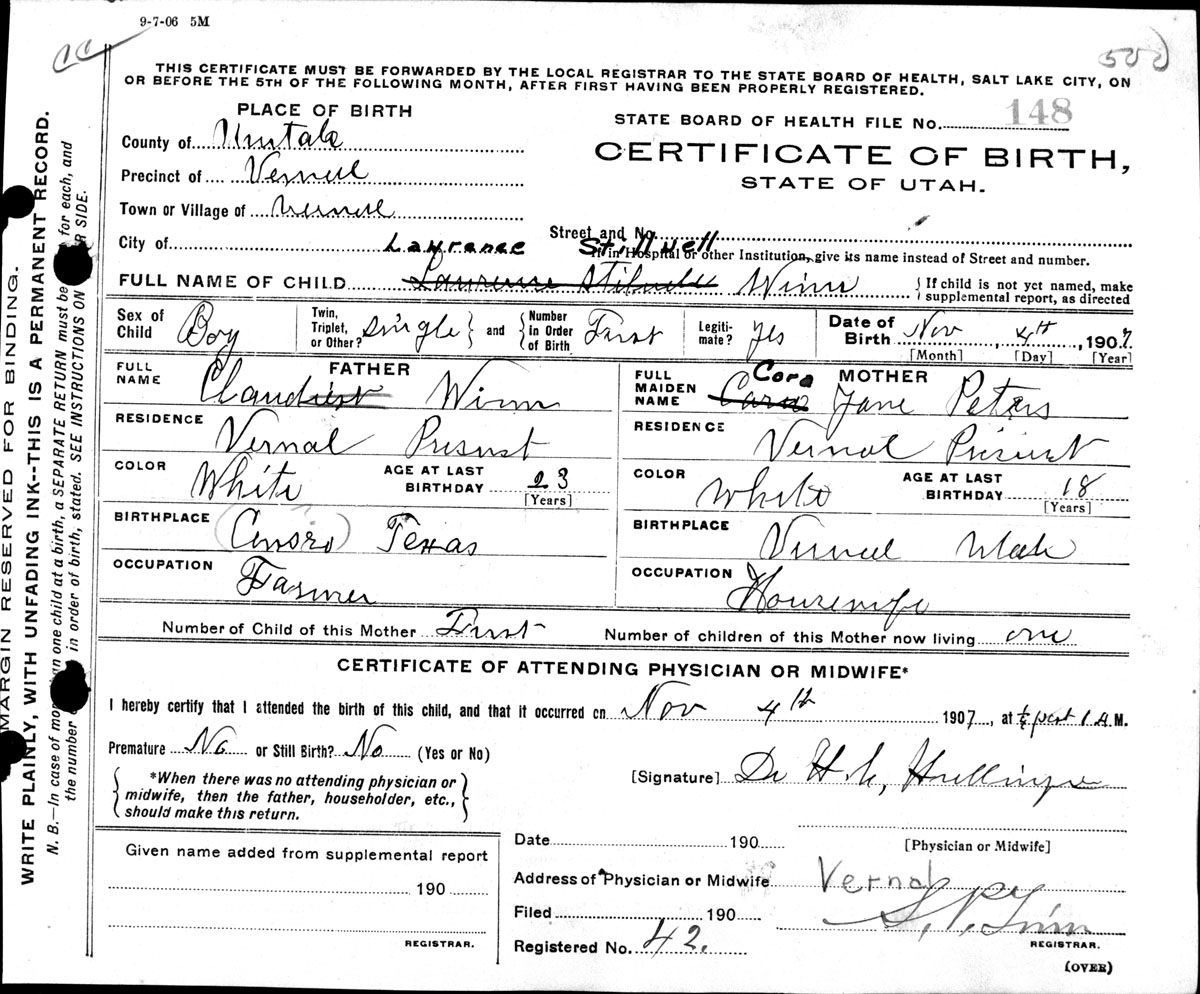 9-7-06 5M
THIS CERTIFICATE MUST BE FORWARDED BY THE LOCAL REGISTRAR TO THE STATE BOARD OF HEALTH, SALT LAKE CITY, ON
OR BEFORE THE 5TH OF THE FOLLOWING MONTH, AFTER FIRST HAVING BEEN PROPERLY REGISTERED.
PLACE OF BIRTH
STATE BOARD OF HEALTH FILE No. 148
County of
CERTIFICATE OF BIRTH,
STATE OF UTAH.
Precinct of
Town or Village of
City of
Street and No.
If in Hospital or other Institution, give its name instead of Street and number.
Lawrence Stillwell
FULL NAME OF CHILD Winn
{ If child is not yet named, make
supplemental report, as directed
Sex of Child Boy
Twin, Triplet, or Other? Single } and { Number in Order of Birth First
Legiti-mate? Yes
Date of Birth Nov, 4th, 1907.
[Month] [Day] [Year]
FATHER
FULL NAME Winn
RESIDENCE Vernal
COLOR White
AGE AT LAST BIRTHDAY 23
[Years]
BIRTHPLACE Texas
OCCUPATION Farmer
MOTHER
FULL MAIDEN NAME Cora Jane Peters
RESIDENCE Vernal
COLOR White
AGE AT LAST BIRTHDAY 18
[Years]
BIRTHPLACE
OCCUPATION Housewife
Number of Child of this Mother First
Number of children of this Mother now living one
CERTIFICATE OF ATTENDING PHYSICIAN OR MIDWIFE*
I hereby certify that I attended the birth of this child, and that it occurred on Nov 4th 1907, at ½ past 1 A.M.
Premature No or Still Birth? No (Yes or No)
{ *When there was no attending physician or
midwife, then the father, householder, etc.,
should make this return. }
[Signature] Dr H
Date 190
[Physician or Midwife]
Given name added from supplemental report
190
REGISTRAR.
Address of Physician or Midwife Vernal
Filed 190
REGISTRAR.
Registered No. 42.
(OVER)
MARGIN RESERVED FOR BINDING.
WRITE PLAINLY, WITH UNFADING INK--THIS IS A PERMANENT RECORD.
N. B.—In case of more than one child at a birth, a SEPARATE RETURN must be for each, and
the number in order of birth, stated. SEE INSTRUCTIONS ON SIDE.